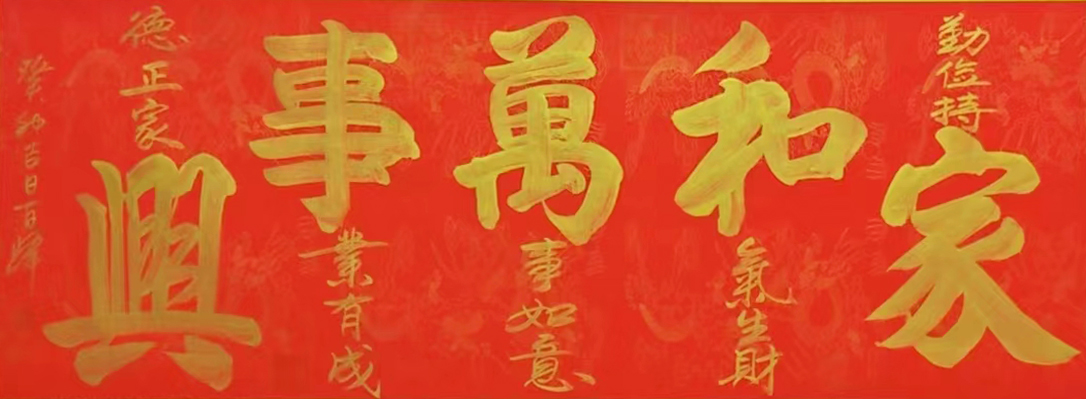 勤俭持家
和氣生財
萬事如意
事業有成
德正家興
癸卯吉日百峰